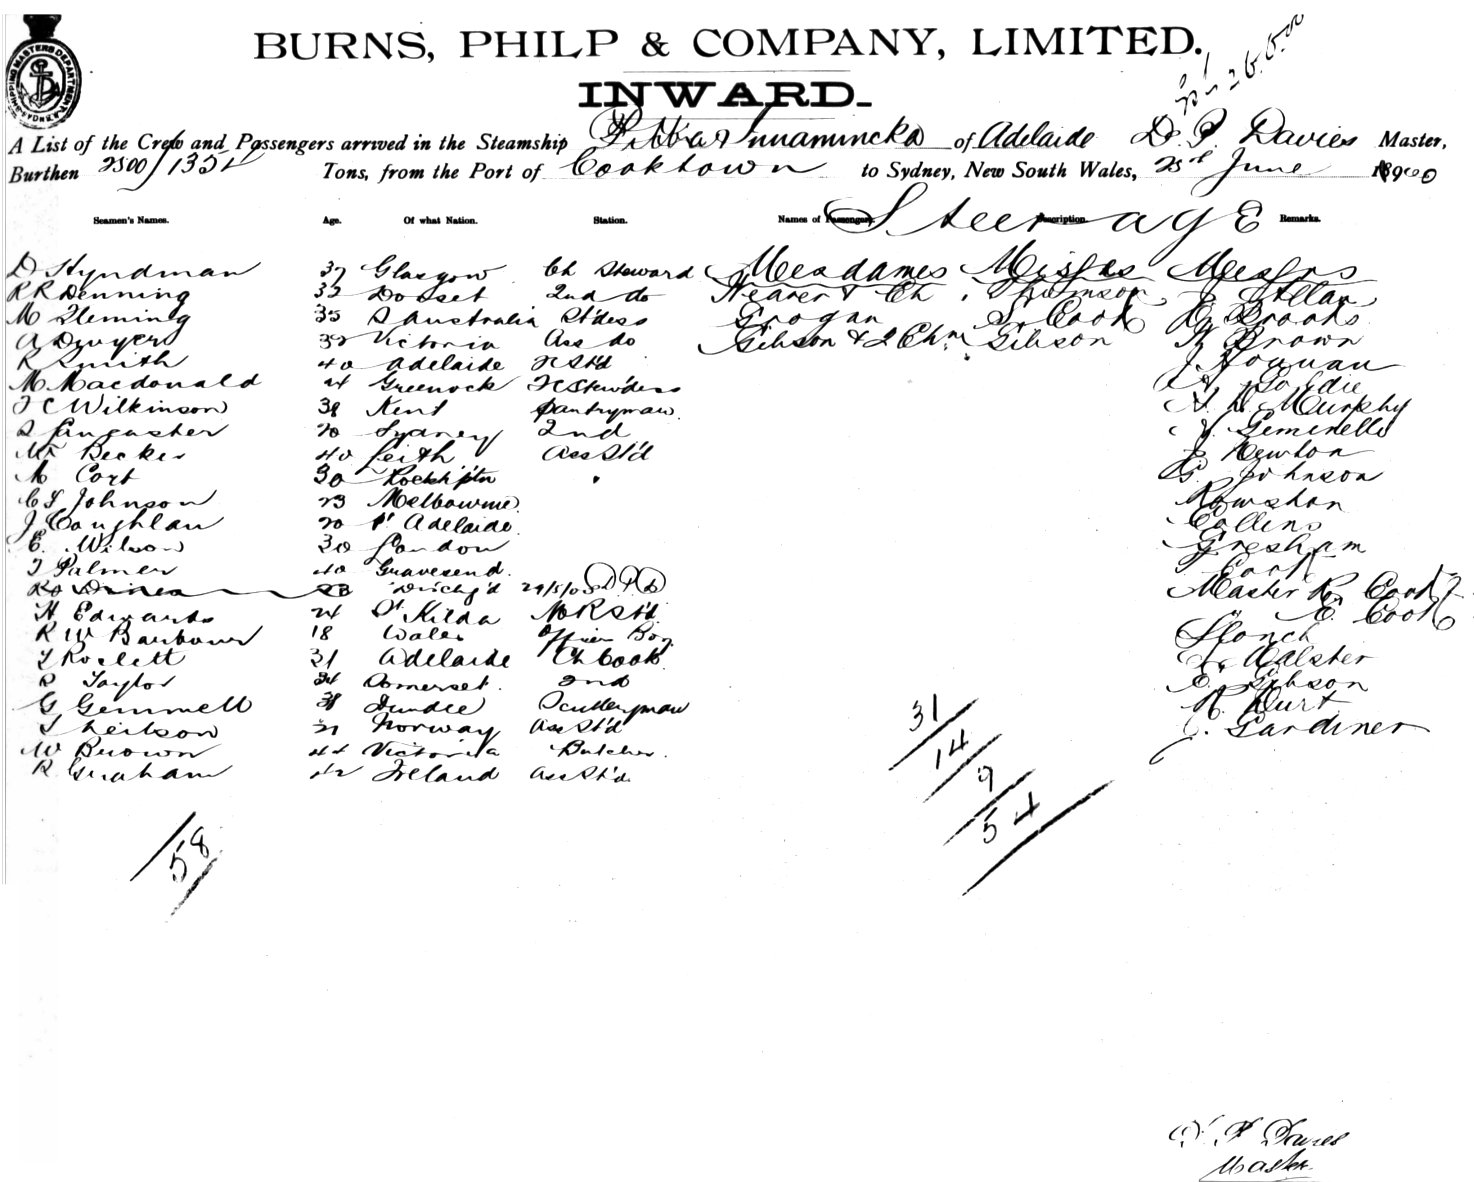 BURNS, PHILP & COMPANY, LIMITED.
INWARD.
SHIPPING MASTERS DEPARTMENT
A List of the Crew and Passengers arrived in the Steamship Innamincka of Adelaide D. P. Davies Master,
Burthen 2500/1352 Tons, from the Port of Cooktown to Sydney, New South Wales, 25th June 1900
Seamen's Names. Age. Of what Nation. Station. Names of Passengers. Description. Remarks.
Steerage
D Hyndman 37 Glasgow Ch Steward Mesdames Misses Messrs
R R Denning 33 Dorset 2nd do & Ch Thomson Allan
M Fleming 35 S Australia St'dess Grogan S. Cook Brooks
A Dwyer 32 Victoria Ass do Gibson & 2 Chn Gibson Brown
R Smith 40 Adelaide F C St'd J.
M Macdonald 24 Greenock F C Stew'dess
F C Wilkinson 38 Kent Pantryman Murphy
S Lancaster 20 Sydney 2nd
Becker 40 Leith Ass St'd Newton
M Cort 30 Rockh'ptn G. Johnson
C S Johnson 23 Melbourne Rowston
J Coughlan 20 Pt Adelaide Collins
E. Wilson 30 London Gresham
T Palmer 40 Gravesend. Cook
Disch'g'd 29/5/0 D P D Master R. Cook
H Edwards 24 St Kilda E. Cook
R W Barbour 18 Wales Boy
31 Adelaide Ch Cook. Alster
R Taylor 24 Somerset. 2nd Gibson
G Gemmell 38 Dundee Sculleryman Durt
S Neilson 21 Norway Ass St'd J. Gardiner
W Brown 44 Victoria Butcher.
R Graham 42 Ireland Ass St'd
31
14
9
54
58
D. P. Davies
Master.